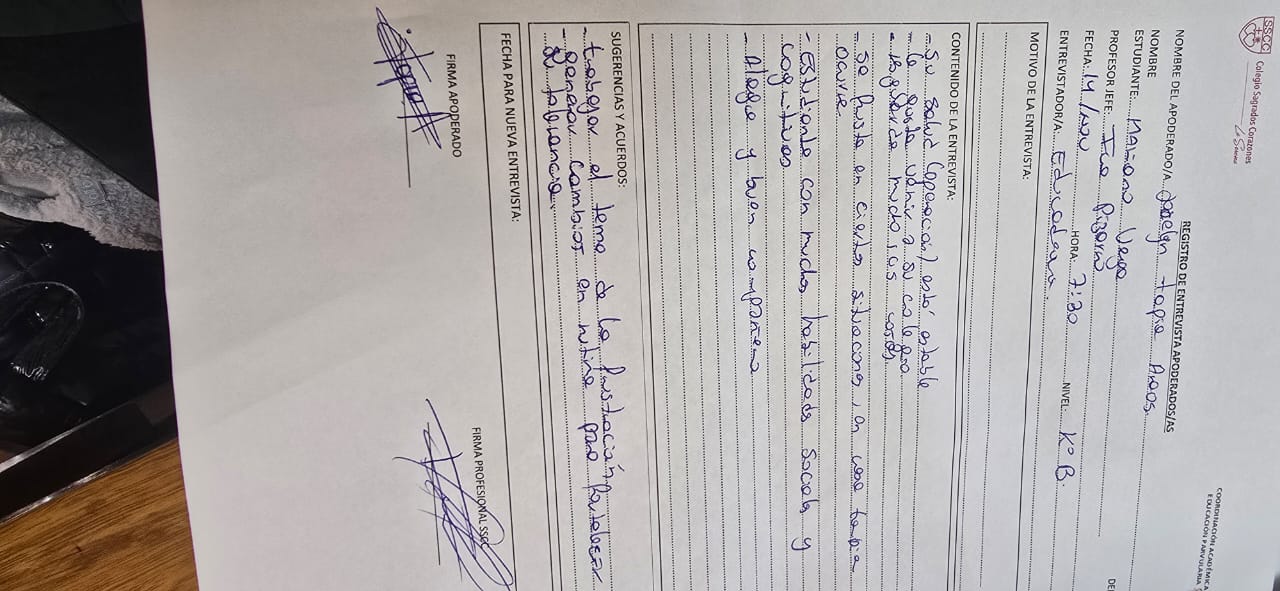 SSCC
Colegio Sagrados Corazones
La Serena
COORDINACIÓN ACADÉMICA
EDUCACIÓN PARVULARIA
REGISTRO DE ENTREVISTA APODERADOS/AS
NOMBRE DEL APODERADO/A Tapia Araos
NOMBRE
ESTUDIANTE: Vega
PROFESOR JEFE: Pizarro
FECHA: 14/Nov HORA: 7:30 NIVEL: K° B.
ENTREVISTADOR/A: Educadora.
MOTIVO DE LA ENTREVISTA:
CONTENIDO DE LA ENTREVISTA:
- Su salud (operación) está estable
- Le gusta venir a su colegio
- mucho sus cosas
- Se frusta en ciertas situaciones, en casa tambia
ocurre
- Estudiante con muchas habilidades sociales y
cognitivas
- Alegre y buen compañero
SUGERENCIAS Y ACUERDOS:
- trabajar el tema de la frustación, fortalecer
- generar cambios en rutina para
su tolerancia.
FECHA PARA NUEVA ENTREVISTA:
FIRMA APODERADO
FIRMA PROFESIONAL SSCC